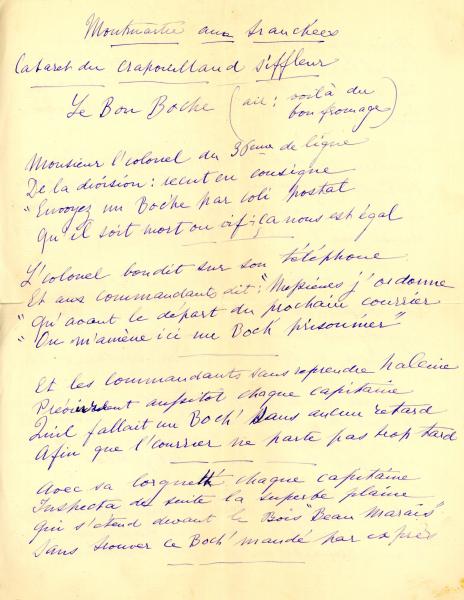 Montmartre aux tranchées
Cabaret du Crapouillaud siffleur
Le Bon Boche (air : voilà du
bon fromage)
Monsieur l'colonel du 36ème de ligne
De la division : reçut en consigne
"Envoyez un Boche par coli postal
Qu'il soit mort ou vif ; ça nous est égal
L'colonel bondit sur son téléphone
Et aux commandants dit : "Messieurs j'ordonne
"Qu'avant le départ du prochain courrier
"On m'amène ici un Boch' prisonnier"
Et les commandants sans reprendre haleine
Prévinrent aussitot chaque capitaine
Qu'il fallait un Boch' sans aucun retard
Afin que l'courrier ne parte pas trop tard
Avec sa lorgnett' chaque capitaine
Inspecta de suite la superbe plaine
qui s'étend devant le Bois "Beau Marais"
Sans trouver ce Boch' mandé par exprès